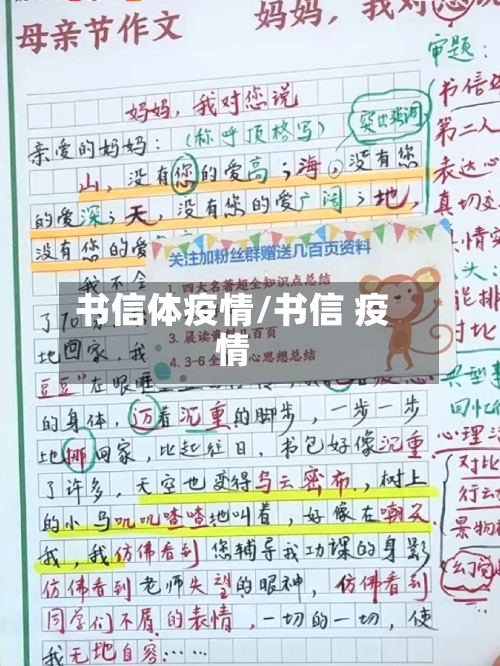 母亲节作文
妈妈，我对您说
审题：
妈妈，我对您说
突出歌词
亲爱的妈妈：（称呼顶格写）
山，没有您的爱高；海，没有您
的爱深；天，没有您的爱广阔；地，
没有您的爱
关注加粉丝群赠送几百页资料
1. 四大名著超全知识点总结
3. 晨读素材几百页
4. 3-6全 心思想总结
书信体疫情/书信 疫
情
我不会
了70
地回家，我
豆豆”在眼睡
的身体，迈着沉重的脚步，一步一步
地挪回家，比起往日，书包好像沉重
了许多，天空也变得乌云密布，树上
的小鸟叽叽喳喳地叫着，好像在嘲笑
我，我仿佛看到您辅导我功课的身影
仿佛看到老师失望的眼神，仿佛看到
同学们不屑的表情，一切的一切，使
我无地自容……
书信
第二人
表达
真切
真情实
头：
能排
对比
典型
回忆
心理
对比
行云
景物
幻觉